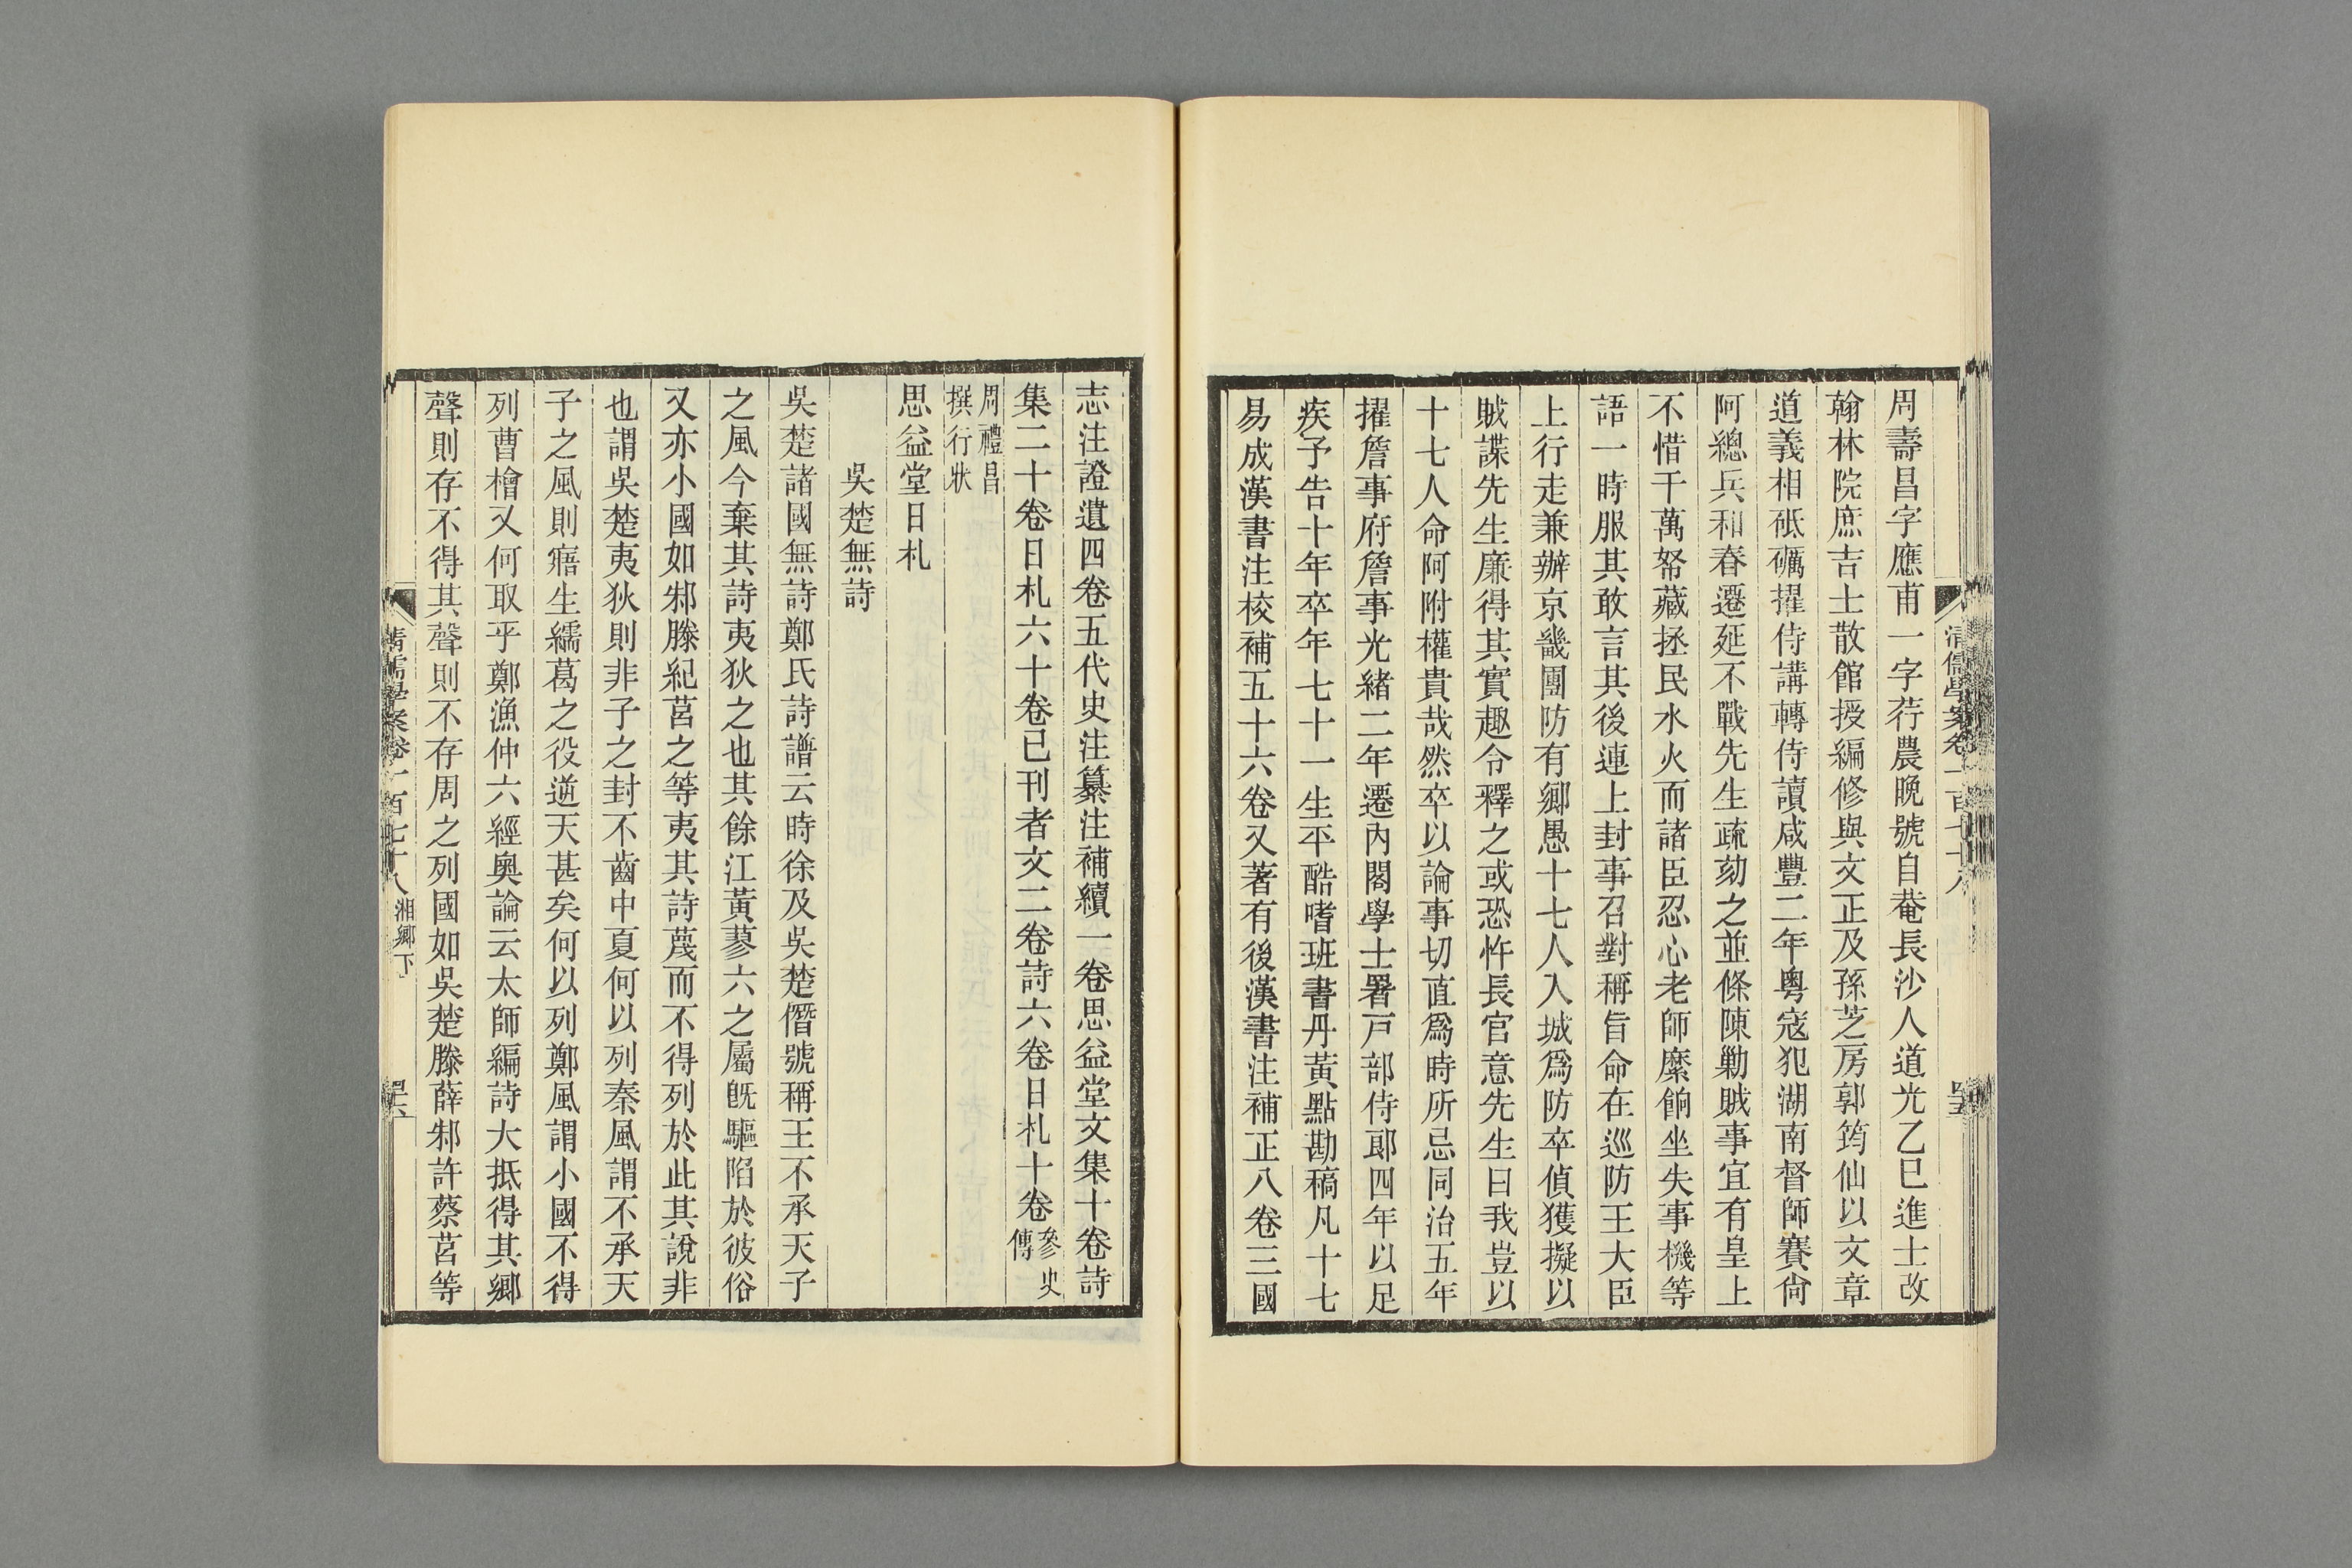 周壽昌字應甫一字荇農晚號自菴長沙人道光乙巳進士改
翰林院庶吉士散館授編修與文正及孫芝房郭筠仙以文章
道義相砥礪擢侍講轉侍讀咸豐二年粵寇犯湖南督師賽尙
阿總兵和春遷延不戰先生疏劾之並條陳勦賊事宜有皇上
不惜千萬帑藏拯民水火而諸臣忍心老師縻餉坐失事機等
語一時服其敢言其後連上封事召對稱旨命在巡防王大臣
上行走兼辦京畿團防有鄉愚十七人入城爲防卒偵獲擬以
賊諜先生廉得其實趣令釋之或恐忤長官意先生曰我豈以
十七人命阿附權貴哉然卒以論事切直爲時所忌同治五年
擢詹事府詹事光緒二年遷內閣學士署戸部侍郎四年以足
疾予告十年卒年七十一生平酷嗜班書丹黃點勘稿凡十七
易成漢書注校補五十六卷又著有後漢書注補正八卷三國
志注證遺四卷五代史注纂注補續一卷思益堂文集十卷詩
集二十卷日札六十卷已刊者文二卷詩六卷日札十卷參史
傳
周禮昌
撰行狀
思益堂日札
吳楚無詩
吳楚諸國無詩鄭氏詩譜云時徐及吳楚僭號稱王不承天子
之風今棄其詩夷狄之也其餘江黃蓼六之屬旣驅陷於彼俗
又亦小國如邾滕紀莒之等夷其詩蔑而不得列於此其說非
也謂吳楚夷狄則非子之封不齒中夏何以列秦風謂不承天
子之風則寤生繻葛之役逆天甚矣何以列鄭風謂小國不得
列曹檜又何取乎鄭漁仲六經奧論云太師編詩大抵得其鄉
聲則存不得其聲則不存周之列國如吳楚滕薛邾許蔡莒等
清儒學案卷一百七十八 湘鄉下